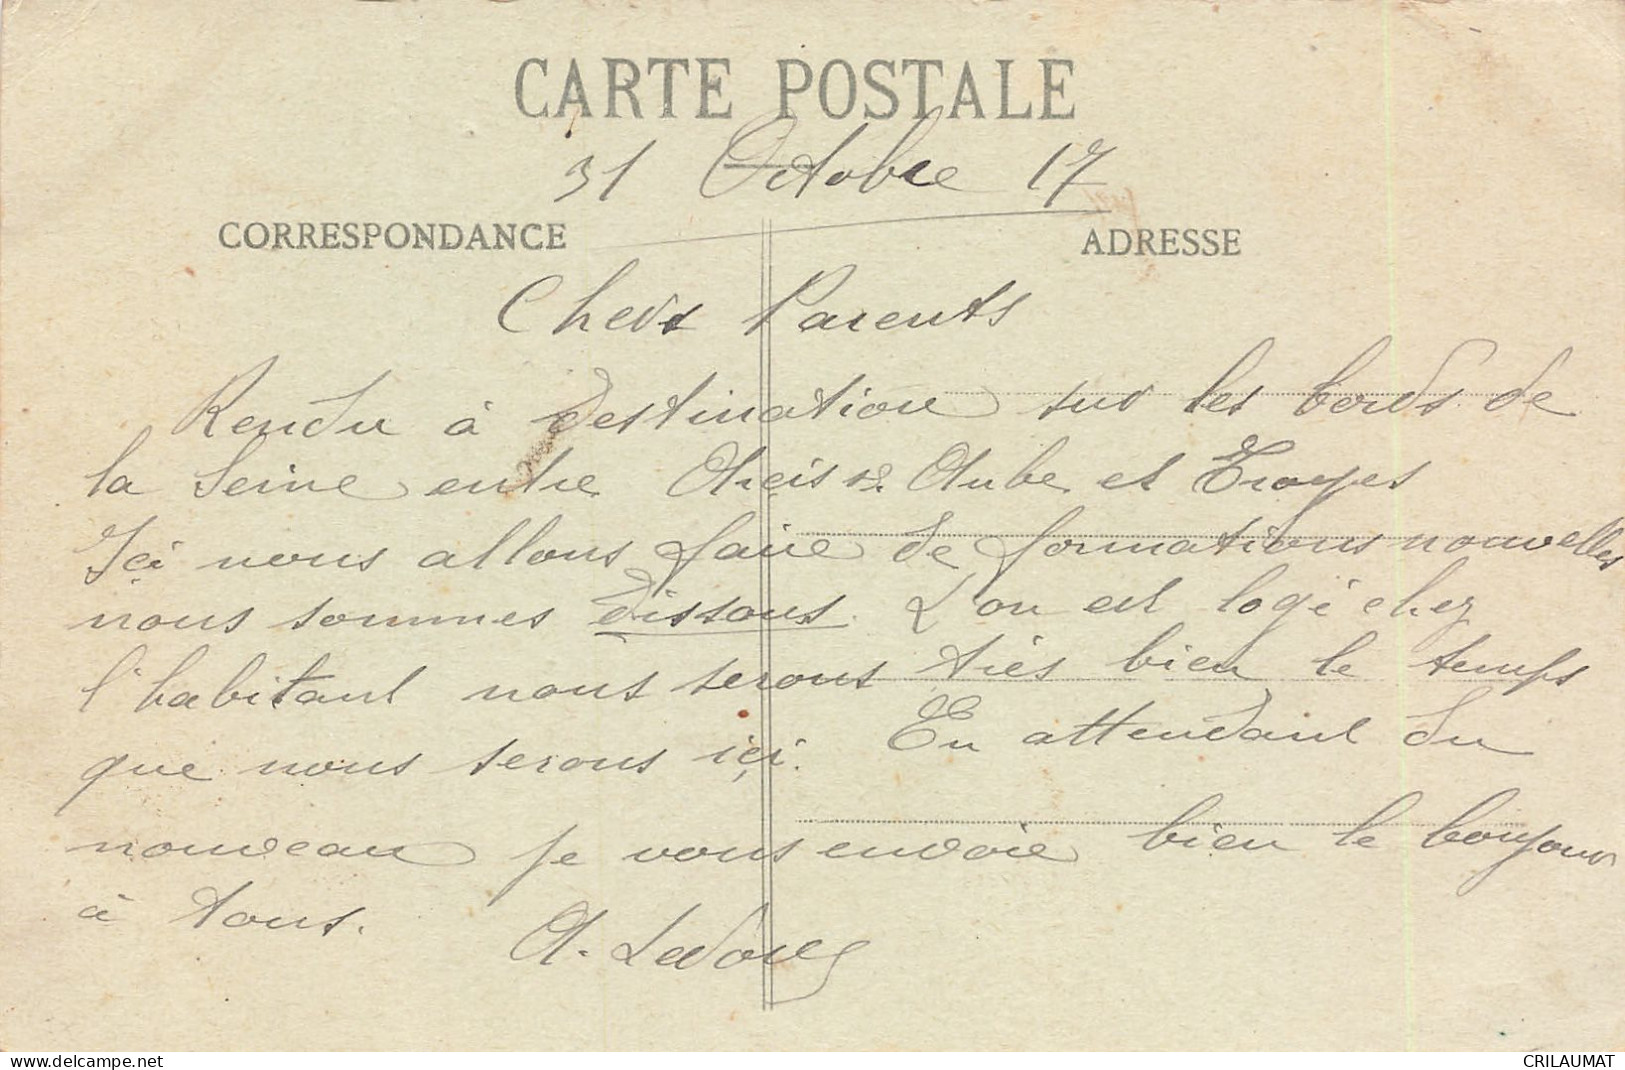 CARTE POSTALE
31 Octobre 17
CORRESPONDANCE
ADRESSE
Chers Parents
Rendu à destination sur les bords de
la Seine entre Arcis s. Aube et Troyes
Içi nous allons faire de formations nouvelles
nous sommes dissous. L'on est logé chez
l'habitant nous serons très bien le temps
que nous serons içi. En attendant du
nouveau je vous envoie bien le bonjour
à tous. A.
www.delcampe.net
CRILAUMAT